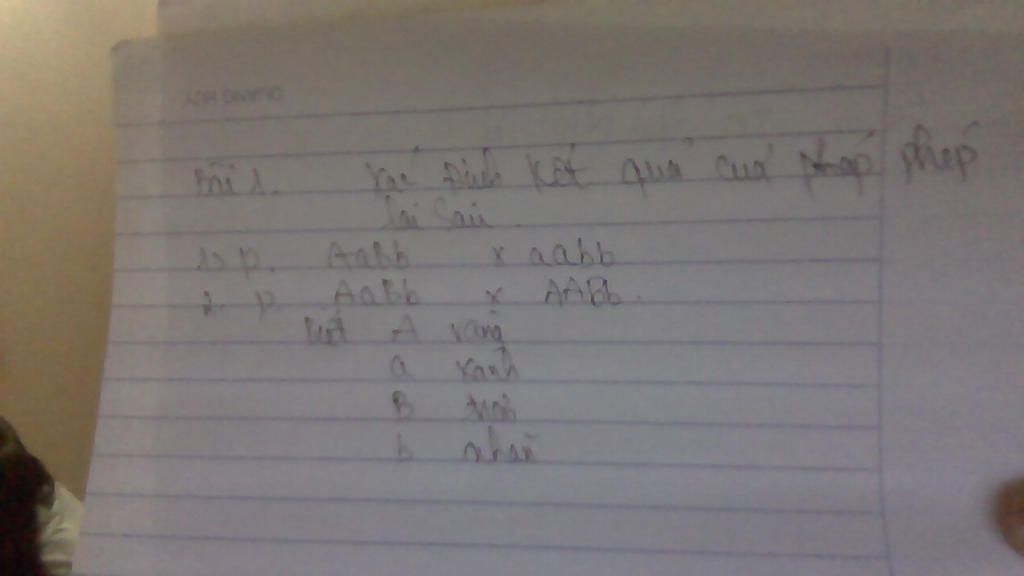 Bài 1. Xác Định kết quả của phép phép
lai sau
1, P. AaBb x aabb
2. P. AaBb x AABb.
biết A vàng
a xanh
B trơn
b nhăn